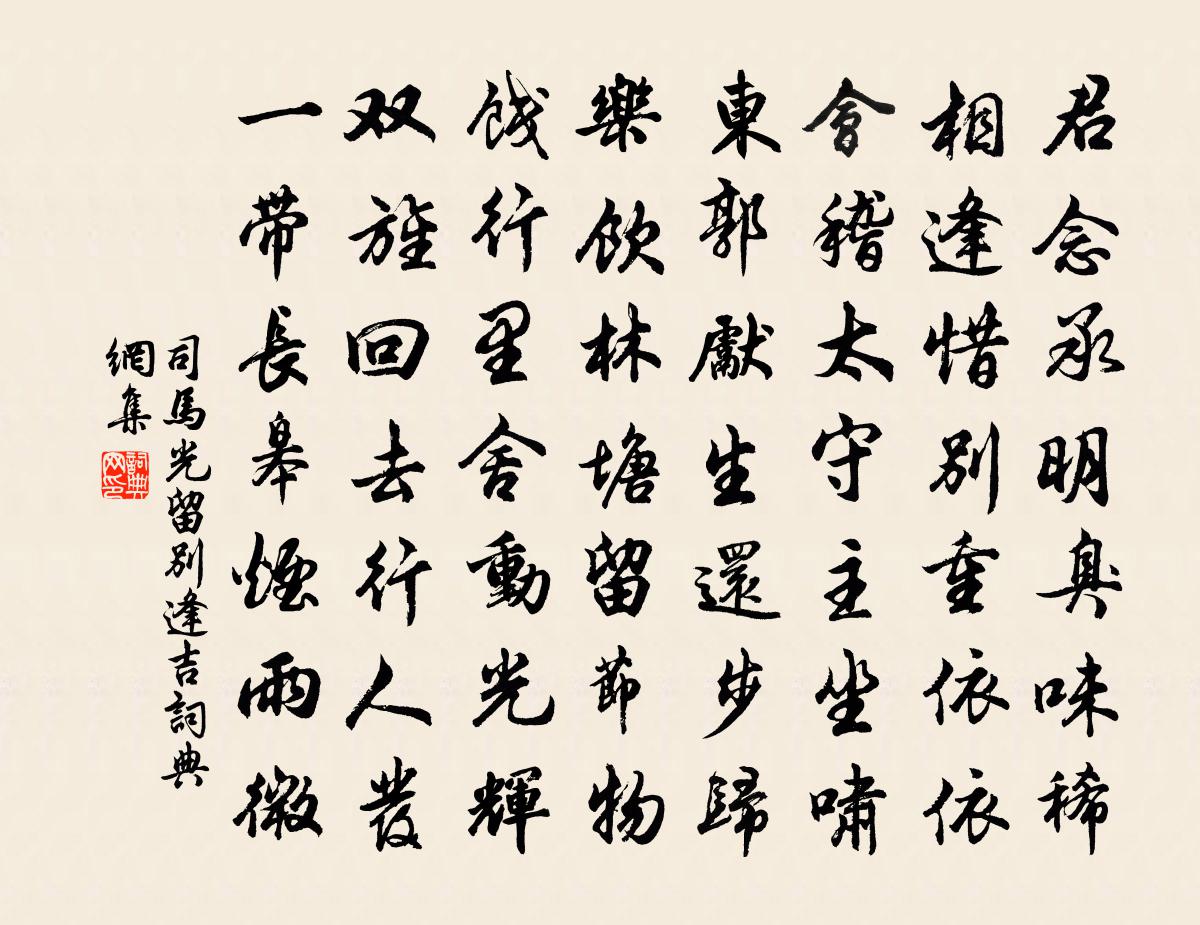 君念承明臭味稀
相逢惜別重依依
會稽太守主坐嘯
東郭獻生還步歸
樂飲林塘留節物
餞行里舍動光輝
双旌回去行人發
一帶長皋煙雨微
司馬光留別逢吉詞典
網集
詞典
网印